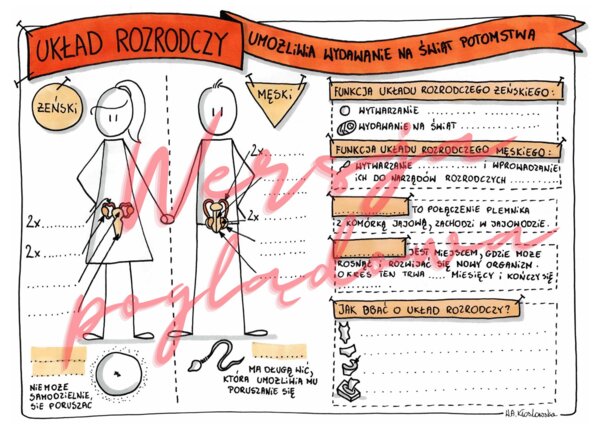 UKŁAD ROZRODCZY
UMOŻLIWIA WYDAWANIE NA ŚWIAT POTOMSTWA
ŻEŃSKI
MĘSKI
2x
2x
2x
2x
NIE MOŻE
SAMODZIELNIE,
SIĘ PORUSZAĆ
MA DŁUGĄ WIĆ,
KTÓRA UMOŻLIWIA MU
PORUSZANIE SIĘ
FUNKCJA UKŁADU ROZRODCZEGO ŻEŃSKIEGO:
WYTWARZANIE ....................
WYDAWANIE NA ŚWIAT ....................
FUNKCJA UKŁADU ROZRODCZEGO MĘSKIEGO:
WYTWARZANIE .................... I WPROWADZANIE
ICH DO NARZĄDÓW ROZRODCZYCH ..........
TO POŁĄCZENIE PLEMNIKA
Z KOMÓRKĄ JAJOWĄ, ZACHODZI W JAJOWODZIE.
JEST MIEJSCEM, GDZIE MOŻE
ROSNĄĆ I ROZWIJAĆ SIĘ NOWY ORGANIZM.
OKRES TEN TRWA ........ MIESIĘCY I KOŃCZY SIĘ
....................
JAK DBAĆ O UKŁAD ROZRODCZY?
H.A. Kłosłowska
Wersja
poglądowa